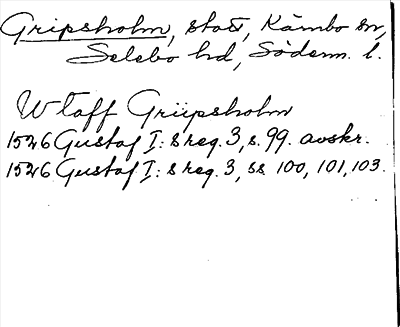 Gripsholm, slott, Kärnbo sn,
Selebo hd, Söderm. l.
Wtaff Griipsholm
1526 Gustaf I: s reg. 3, s. 99. avskr.
1526 Gustaf I: s reg. 3, ss 100, 101, 103.